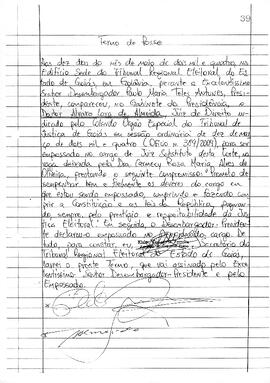 39
Termo de Posse
Aos dez dias do mês de maio de dois mil e quatro, no
Edifício Sede do Tribunal Regional Eleitoral do Es-
tado de Goiás em Goiânia, perante o Excelentíssimo
Senhor Desembargador Paulo Maria Teles Antunes, Presi-
dente, compareceu, no Gabinete da Presidência, o
Doutor Alvaro Lara de Almeida, Juiz de Direito in-
dicado pelo Colendo Órgão Especial do Tribunal de
Justiça de Goiás em sessão ordinária de dez de mar-
ço de dois mil e quatro (Ofício n. 359/2004), para ser
empossado no cargo de Juiz Substituto desta Corte, na
vaga deixada pela Dra. Ameça Rosa Maria Alves de
Oliveira, prestando o seguinte compromisso: "Prometo de-
sempenhar bem e fielmente os deveres do cargo em
que estou sendo empossado, cumprindo e fazendo cum-
prir a Constituição e as leis da República, pugnan-
do, sempre, pelo prestígio e respeitabilidade da Jus-
tiça Eleitoral". Em seguida, o Desembargador-Presiden-
te declarou-o empossado no cargo. De
tudo, para constar, eu, Secretário do
Tribunal Regional Eleitoral do Estado de Goiás,
lavrei o presente Termo, que vai assinado pelo Exce-
lentíssimo Senhor Desembargador-Presidente e pelo
Empossado.